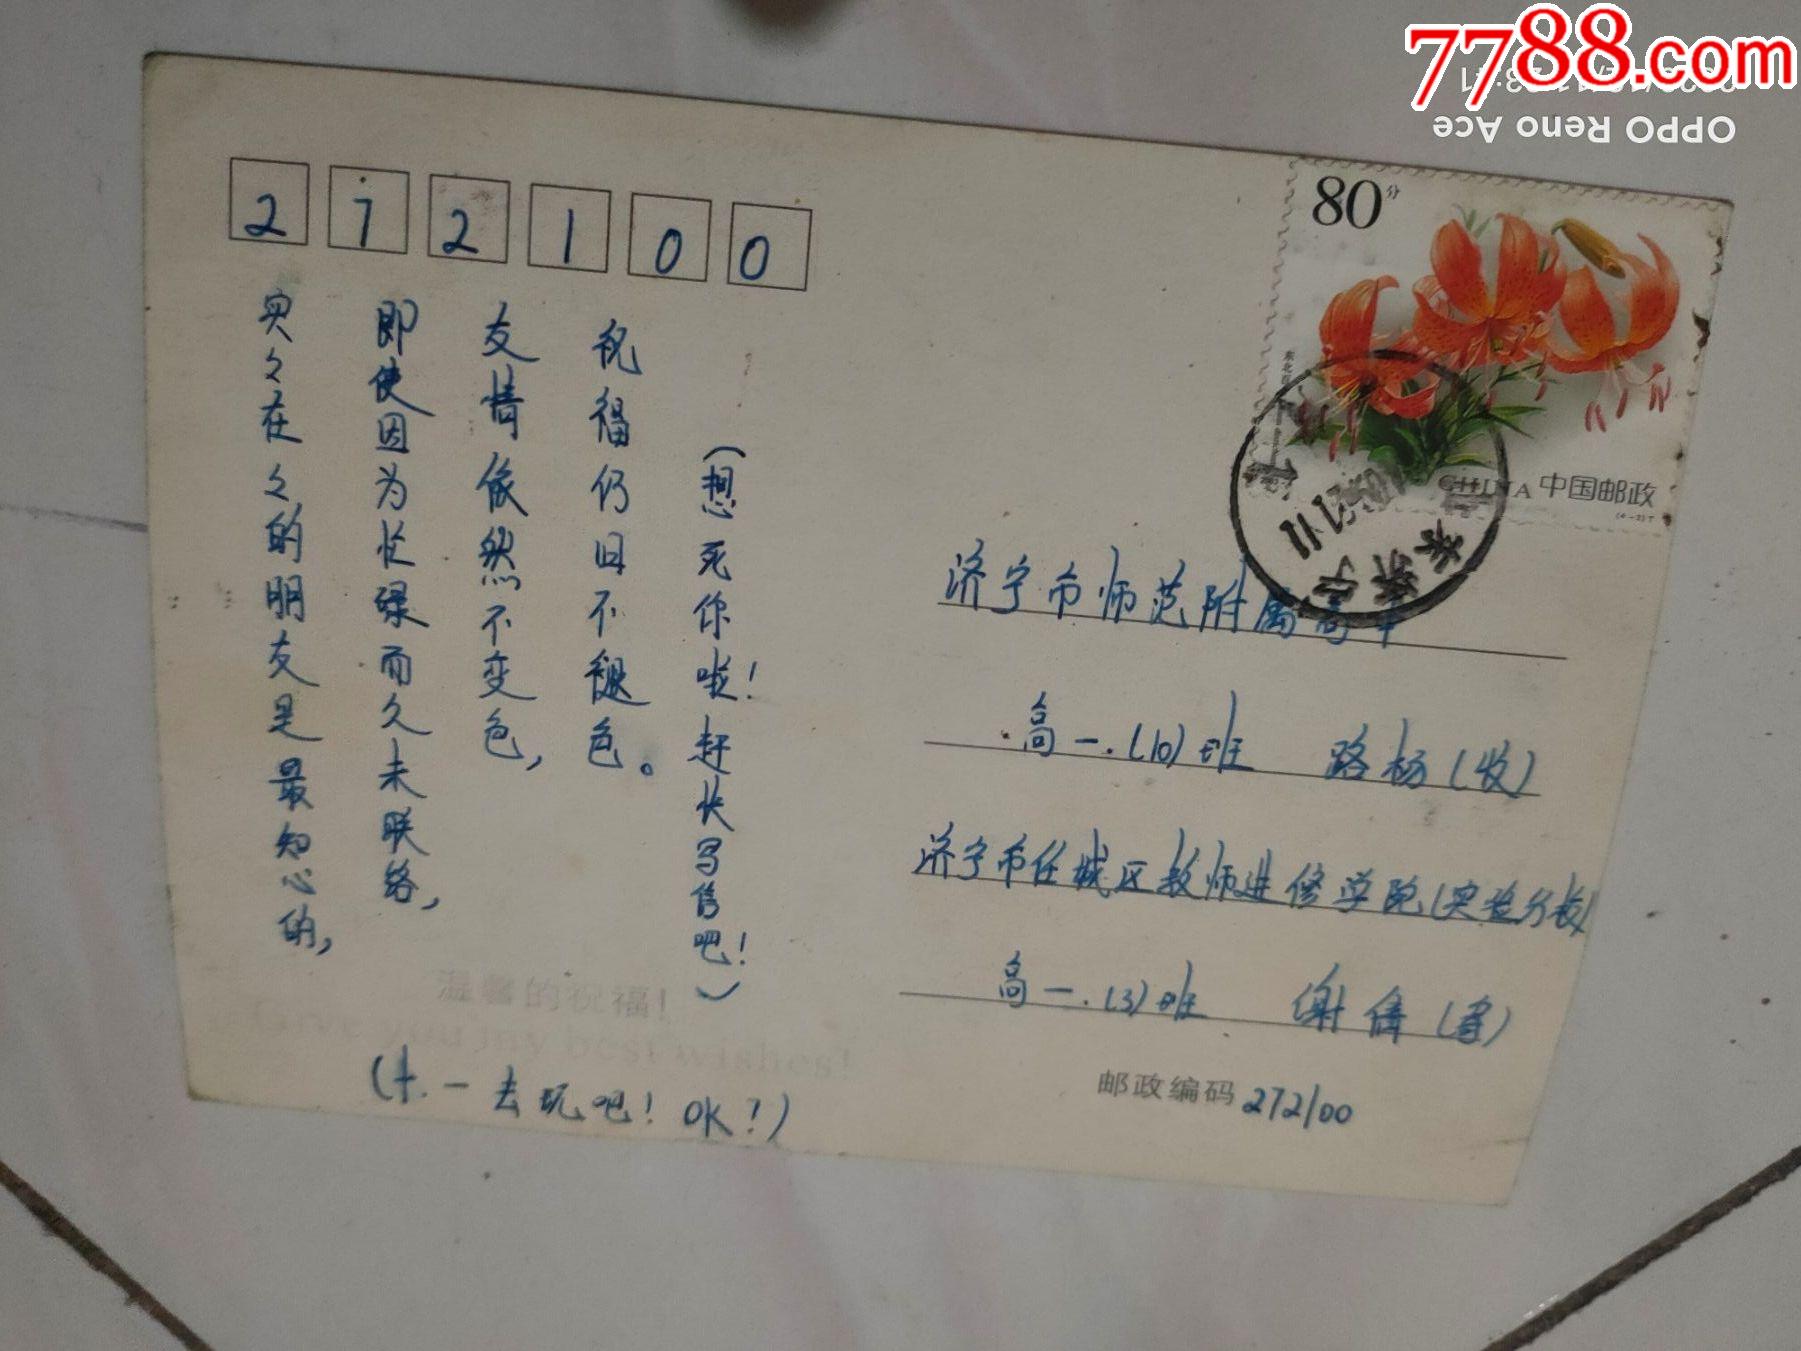 7788.com
OPPO Reno Ace
272100
80分
CHINA 中国邮政
实々在々的朋友是最知心的,
即使因为忙碌而久未联络,
友情依然不变色,
祝福仍旧不褪色。
(想死你啦!赶快写信吧!)
(十.一去玩吧!OK?)
温馨的祝福!
Give you my best wishes!
济宁市师范附属高中
高一.(10)班 路杨(收)
济宁市任城区教师进修学院(实验分校)
高一.(3)班 谢倩(寄)
邮政编码 272100